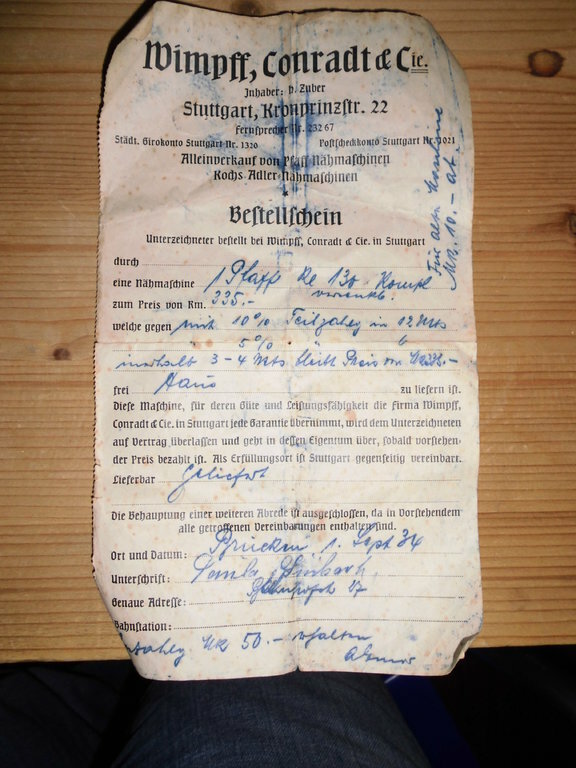 Wimpff, Conradt & Cie.
Inhaber: H. Zuber
Stuttgart, Kronprinzstr. 22
Fernsprecher Nr. 232 67
Städt. Girokonto Stuttgart Nr. 1320 Postscheckkonto Stuttgart Nr. 1021
Alleinverkauf von Pfaff Nähmaschinen
Kochs Adler-Nähmaschinen
Für alte Maschine
Mk. 10.- ab.
Bestellschein
Unterzeichneter bestellt bei Wimpff, Conradt & Cie. in Stuttgart
durch
eine Nähmaschine 1 Pfaff Kl 130 kompl
versenkb.
zum Preis von Rm. 335.-
welche gegen mit 10% Teilzahlg in 12 Mts
5% " "
innerhalb 3-4 Mts bleibt Preis von
frei Haus zu liefern ist.
Diese Maschine, für deren Güte und Leistungsfähigkeit die Firma Wimpff,
Conradt & Cie. in Stuttgart jede Garantie übernimmt, wird dem Unterzeichneten
auf Vertrag überlassen und geht in dessen Eigentum über, sobald vorstehen-
der Preis bezahlt ist. Als Erfüllungsort ist Stuttgart gegenseitig vereinbart.
Lieferbar geliefert
Die Behauptung einer weiteren Abrede ist ausgeschlossen, da in Vorstehendem
alle getroffenen Vereinbarungen enthalten sind.
Ort und Datum: 1. Sept 34
Unterschrift:
Genaue Adresse: Bahnhofstr 27
Bahnstation:
Mk 50.- erhalten